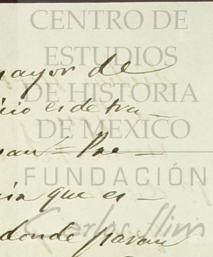 CENTRO DE
ESTUDIOS
DE HISTORIA
DE MEXICO
FUNDACIÓN
Carlos Slim
mayor de
cio es de tra-
que es-
donde paran